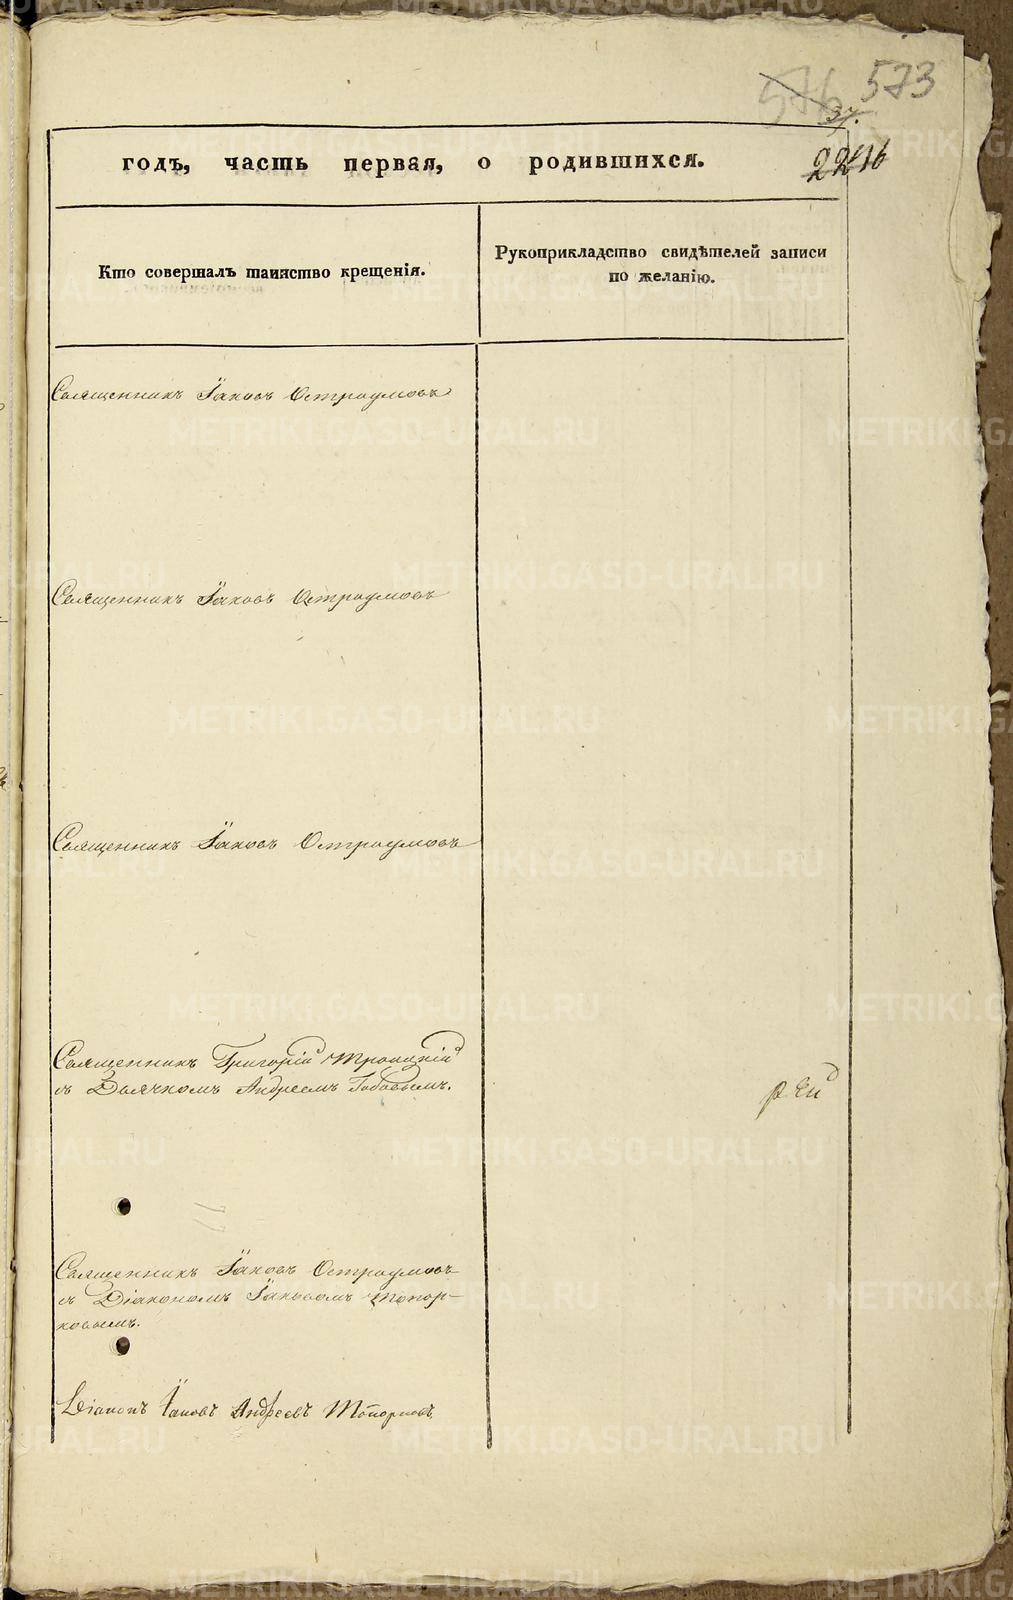 576 573
37.
2216
годъ, часть первая, о родившихся.
Кто совершалъ таинство крещенія.
Рукоприкладство свидѣтелей записи
по желанію.
Священникъ Іаковъ Остроумовъ
Священникъ Іаковъ Остроумовъ
Священникъ Іаковъ Остроумовъ
Священникъ Григорій Троицкій
съ Дьячкомъ Андреемъ
Священникъ Іаковъ Остроумовъ
съ Діакономъ Іаковомъ Топор-
ковымъ.
Діаконъ Іаковъ Андреевъ Топорковъ
METRIKI.GASO-URAL.RU